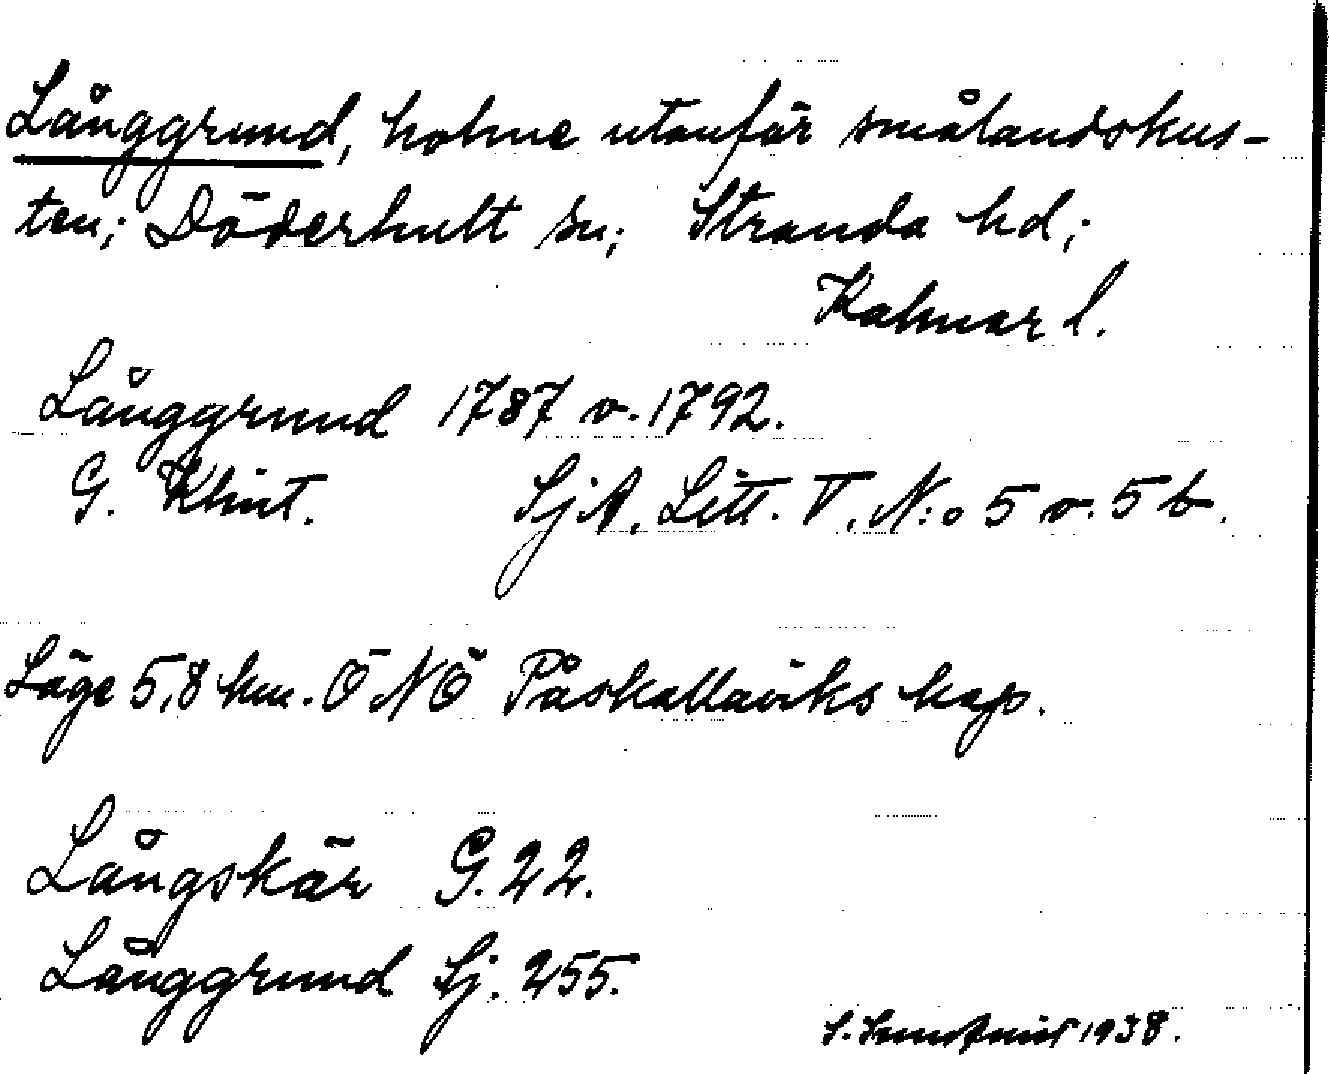 Långgrund, holme utanför smålandskus-
ten; Döderhult sn; Stranda hd;
Kalmar l.
Långgrund 1787 o. 1792.
G. Klint. SjA. Litt. V. N:o 5 o. 5 b.
Läge 5,8 km. Ö NÖ Påskallaviks kap.
Långskär G. 22.
Långgrund Sj. 255.
S. 1938.